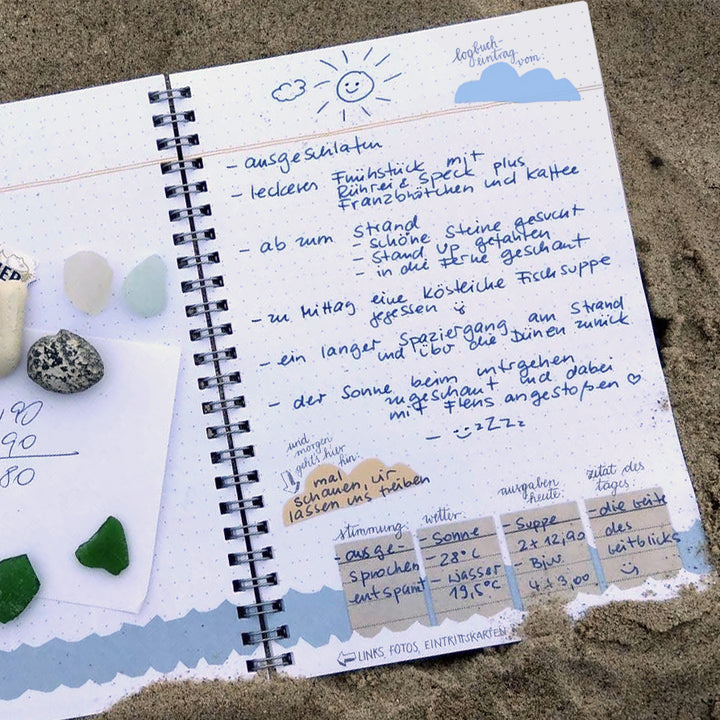 logbuch-
eintrag vom:
- ausgeschlafen
- leckeren Frühstück mit
Rührei & Speck plus
Franzbrötchen und Kaffee
- ab zum Strand
- schöne Steine gesucht
- Stand up gefahren
- in die Ferne geschaut
- zu Mittag eine köstliche Fischsuppe
gegessen
- ein langer Spaziergang am Strand
und über die Dünen zurück
- der Sonne beim untrgehen
zugeschaut und dabei
mit Flens angestoßen ♡
- zZZz
und
morgen
geht's hier
hin:
mal
schauen, wir
lassen uns treiben
stimmung:
ausge-
sprochen
entspannt
wetter:
- Sonne
- 28°C
- Wasser
19,5°C
ausgaben
heute:
- Suppe
2x 12,90
- Bier
4x3,00
zitat des
tages:
- die Weite
des
Weitblicks
LINKS, FOTOS, EINTRITTSKARTEN
90
90
80